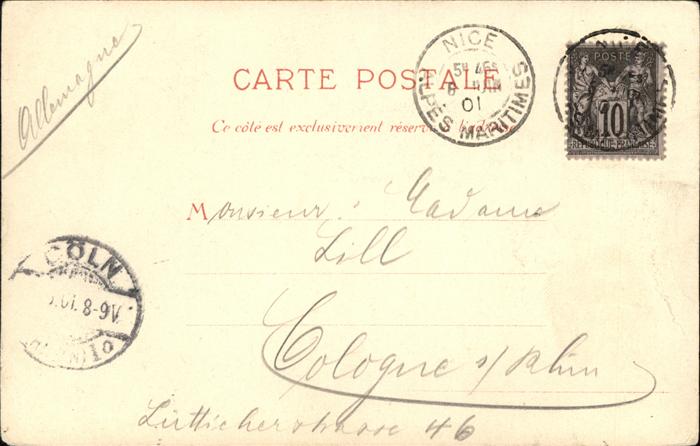 Allemagne
CARTE POSTALE
Ce côté est exclusivement réservé
NICE
5H 45S
01
ALPES MARITIMES
POSTE
10
REPUBLIQUE FRANÇAISE
Monsieur : Madame
Lill
Cologne s/ Rhin
Lütticherstrasse 46
CÖLN
.01. 8-9V.